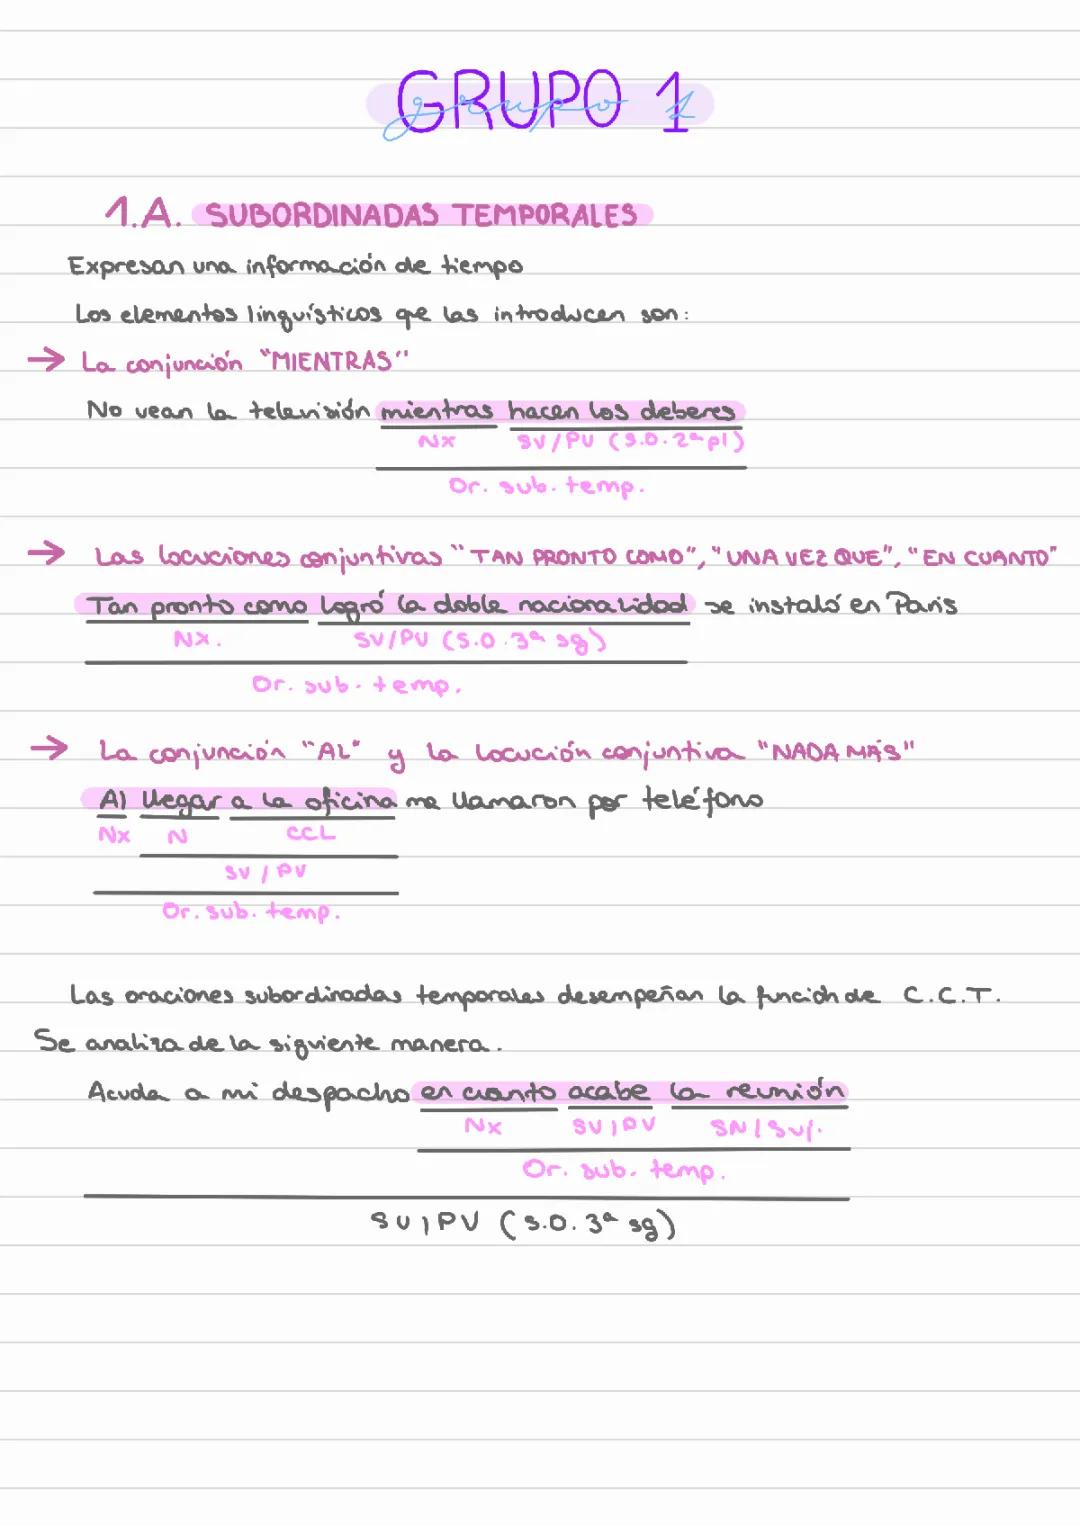 GRUPO 1
grupo 1
1.A. SUBORDINADAS TEMPORALES
Expresan una información de tiempo
Los elementos lingüísticos que las introducen son:
→ La conjunción "MIENTRAS"
No vean la televisión mientras hacen los deberes
Nx SV/PV (S.O. 2ª pl)
Or. sub. temp.
→ Las locuciones conjuntivas "TAN PRONTO COMO", "UNA VEZ QUE", "EN CUANTO"
Tan pronto como logró la doble nacionalidad se instaló en París
NX. SV/PV (S.O. 3ª sg)
Or. sub. temp.
→ La conjunción "AL" y la locución conjuntiva "NADA MÁS"
Al llegar a la oficina me llamaron por teléfono
Nx N CCL
SV / PV
Or. sub. temp.
Las oraciones subordinadas temporales desempeñan la función de C.C.T.
Se analiza de la siguiente manera.
Acuda a mi despacho en cuanto acabe la reunión
Nx SV/PV SN/Suj.
Or. sub. temp.
SV/PV (S.O. 3ª sg)